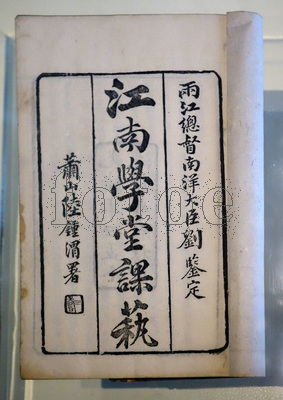 兩江總督南洋大臣劉鑒定
江南學堂課藝
蕭山陸鍾渭署